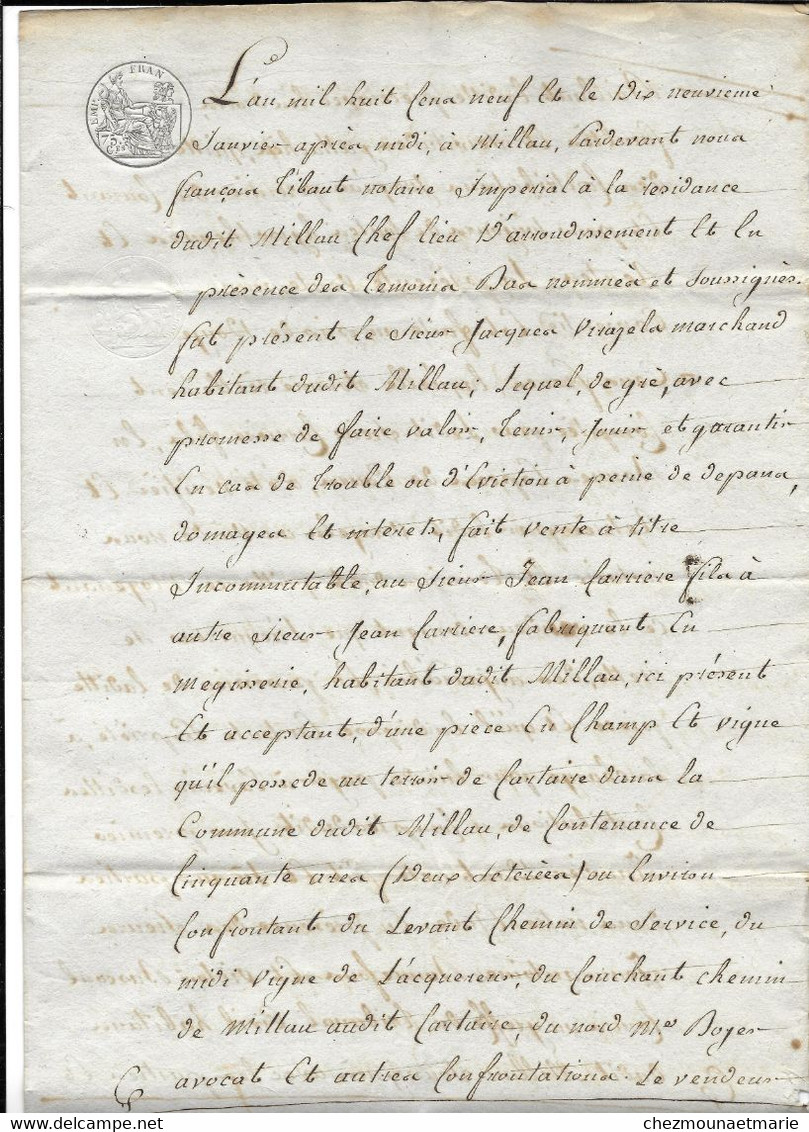 EMP. FRAN
75 C.
L'an mil huit Cens neuf Et le Dix neuvieme
Janvier après midi, à Millau, Pardevant nous
françois Tibaut notaire Imperial à la residance
dudit Millau Chef lieu D'arrondissement Et En
présence des Temoins Bas nommés et Soussignés.
fut présent le sieur Jacques Virazels marchand
habitant dudit Millau; Lequel, de gré, avec
promesse de faire valoir, Tenir, Jouir et garantir
En cas de Trouble ou d'Eviction à peine de depans,
domages Et interets, fait vente à titre
Incommutable, au sieur Jean Carriere fils à
autre sieur Jean Carriere, fabriquant En
megisserie, habitant dudit Millau, ici présent
Et acceptant, d'une piece En Champ Et vigne
qu'il possede au terroir de Cartaire dans la
Commune dudit Millau, de Contenance de
Cinquante ares (Deux Seterées) ou Environ
Confrontant du Levant Chemin de Service, du
midi vigne de L'acquereur, du Couchant chemin
de Millau audit Cartaire, du nord Mr Boyer
avocat Et autres Confrontations. Le vendeur
chezmounaetmarie